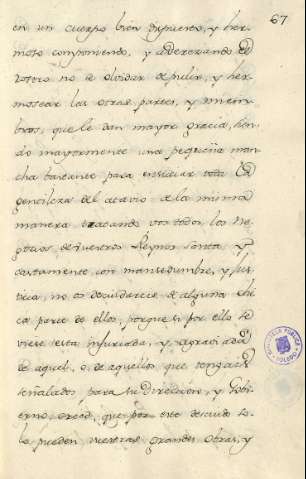 67
en un cuerpo bien dispuesto, y her-
moso componiendo, y aderezando el
rostro no se olvidar de pulir, y her-
mosear las otras partes, y miem-
bros, que le dan mayor gracia,
do mayormente una pequeña man-
cha bastante para ensuciar toda la
gentileza del atavio de la misma
manera tocando vos todos los ne-
gocios de vuestros Reynos santa y
castamente con mansedumbre, y Jus-
ticia, no os descuideis de alguna chi-
ca parte de ellos, porque si por ello se
viese esta injuriada, y agraviada
de aquel, o de aquellos que tengais
señalados para su Direccion, y Gobi-
erno, creed, que por este descuido so-
lo pueden vuestras grandes obras, y
BIBLIOTECA PUBLICA
TOLEDO